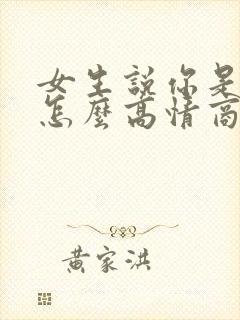 女生說你是
怎麼高情商
黃家洪